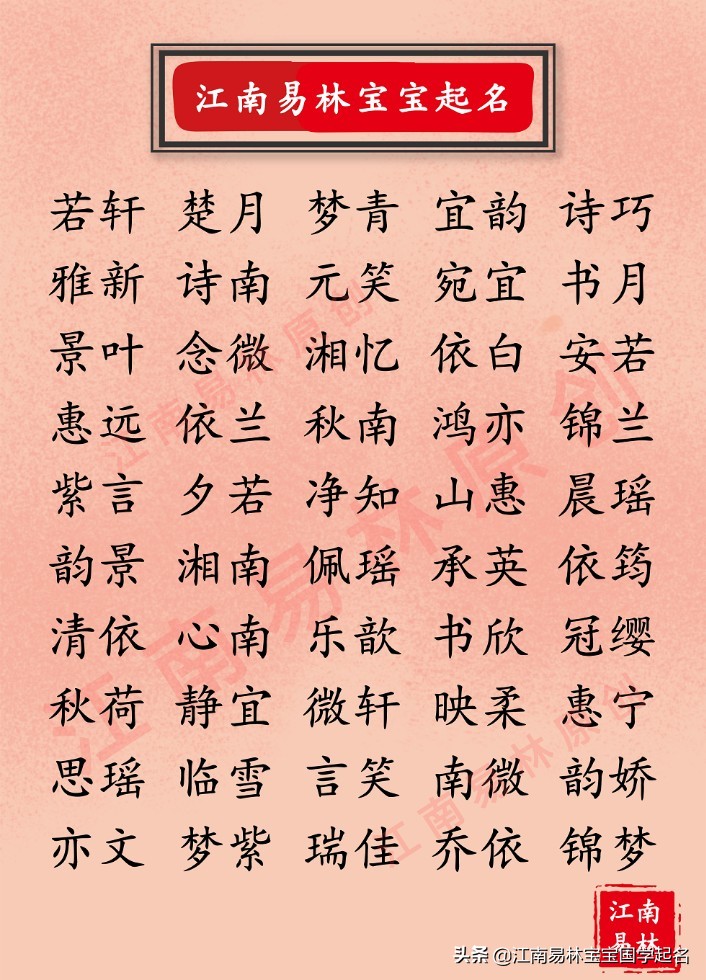 江南易林宝宝起名
若轩 楚月 梦青 宜韵 诗巧
雅新 诗南 元笑 宛宜 书月
景叶 念微 湘忆 依白 安若
惠远 依兰 秋南 鸿亦 锦兰
紫言 夕若 净知 山惠 晨瑶
韵景 湘南 佩瑶 承英 依筠
清依 心南 乐歆 书欣 冠缨
秋荷 静宜 微轩 映柔 惠宁
思瑶 临雪 言笑 南微 韵娇
亦文 梦紫 瑞佳 乔依 锦梦
江南易林原创
江南易林原创
江南易林原创
江南
易林
头条 @江南易林宝宝国学起名